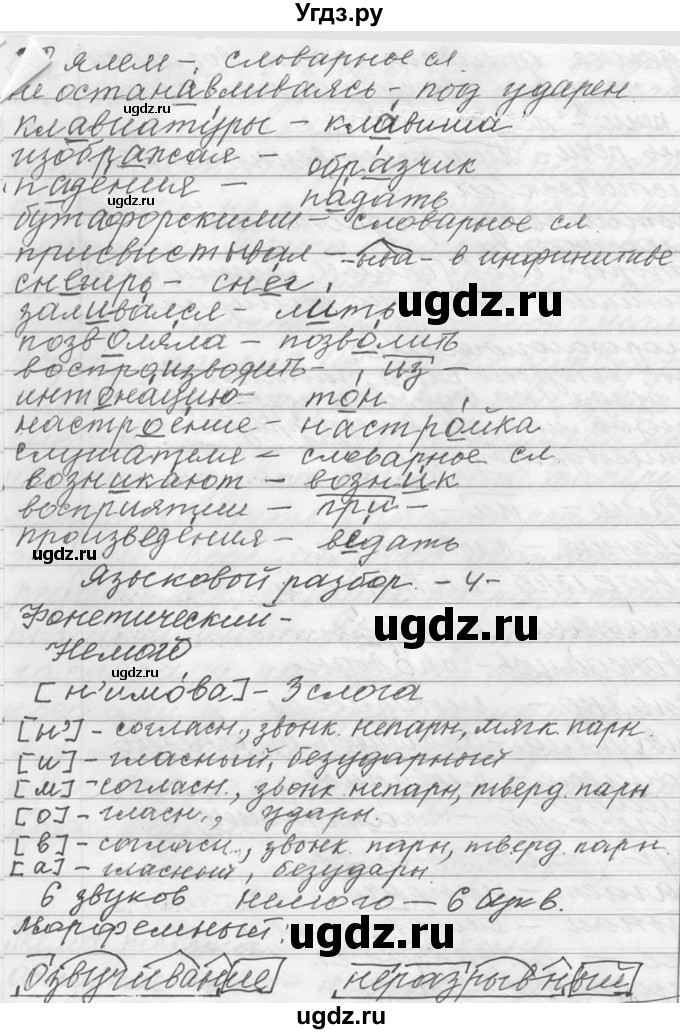 Угдз.ру
ялем - словарное сл.
не останавливаясь - под ударен.
клавиатуры - клавиша
изображая - образчик
падения - падать
бутафорскими - словарное сл.
присвистывал - -ыва- в инфинитиве
снегирь - снег
заливался - лить
позволяла - позволить
воспроизводить - из -
интонацию - тон
настроение - настройка
слушателя - словарное сл.
возникают - возник
восприятии - при -
произведения - ведать
Языковой разбор - 4 -
Фонетический -
Немого
[н'имóва] - 3 слога
[н'] - согласн., звонк. непарн, мягк. парн.
[и] - гласный, безударный
[м] - согласн., звонк. непарн, тверд. парн
[о] - гласн., ударн.
[в] - согласн., звонк. парн, тверд. парн.
[а] - гласный, безударн.
6 звуков немого — 6 букв.
Морфемный:
озвучивание неразрывный
ugdz.ru
ugdz.ru
ugdz.ru
ugdz.ru
ugdz.ru
ugdz.ru
ugdz.ru
ugdz.ru
ugdz.ru